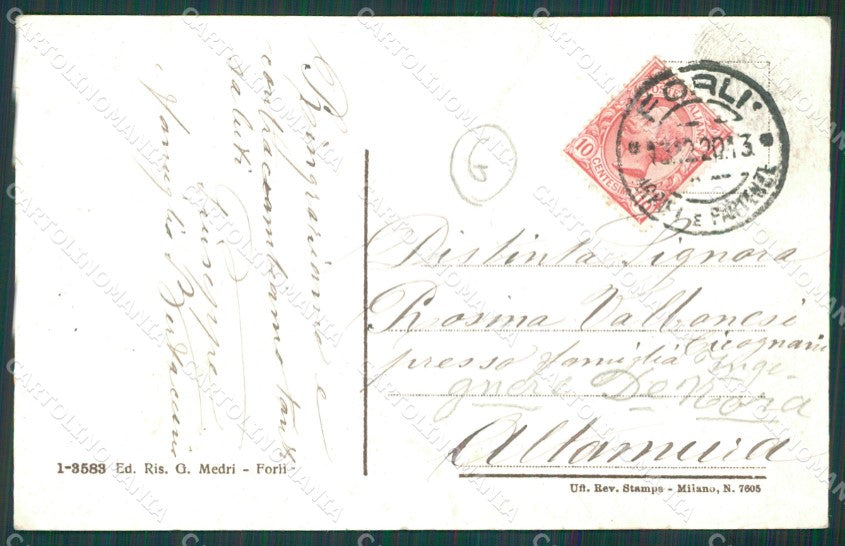 Ringraziamo e
contraccambiamo tanti
saluti
Giuseppe
Famiglia
1-3583 Ed. Ris. G. Medri - Forlì
G
10
CENTESIMI
FORLI'
13.12.20 13
ARRIVI E PARTENZE
Distinta Signora
Rosina Vallonesi
presso famiglia Inge-
gnere De Nora
Altamura
Uff. Rev. Stampa - Milano, N. 7605
CARTOLINOMANIA